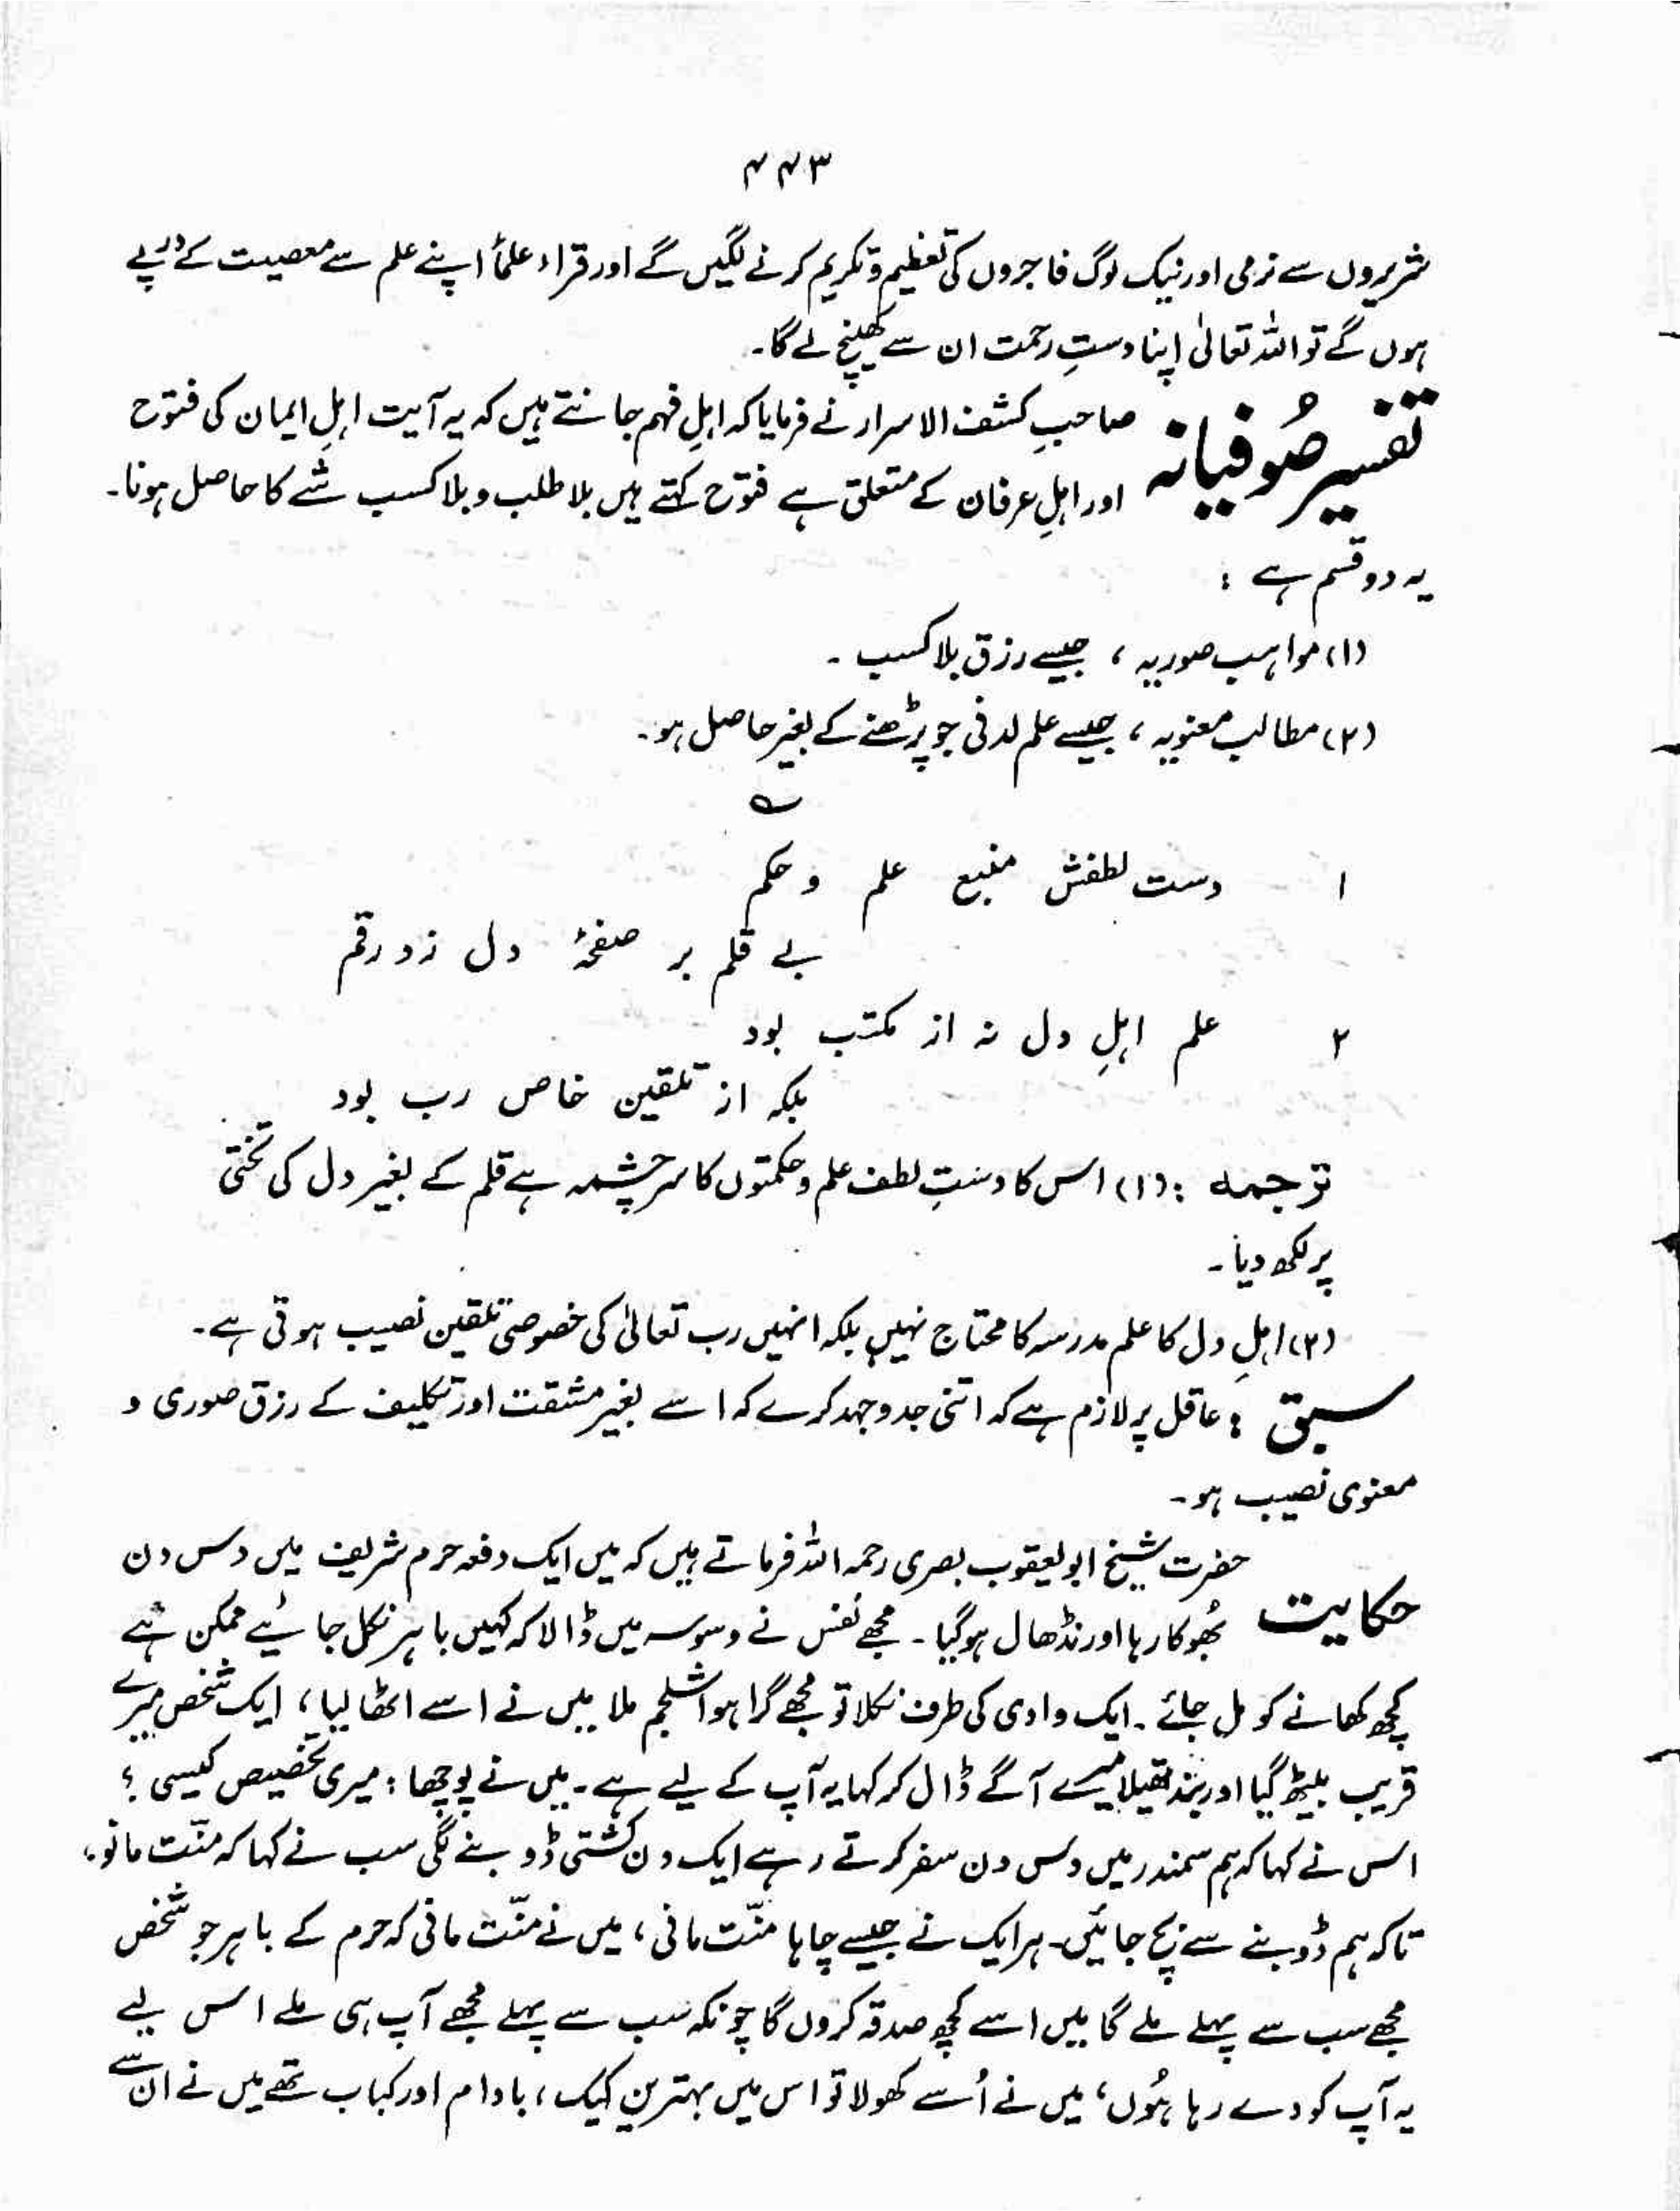 ۴۴۳
شریروں سے نرمی اور نیک لوگ فاجروں کی تعظیم و تکریم کرنے لگیں گے اور قراء علمأ اپنے علم سے معصیت کے درپے
ہوں گے تو اللہ تعالیٰ اپنا دستِ رحمت ان سے کھینچ لے گا۔
تفسیر صُوفیانہ
صاحبِ کشف الاسرار نے فرمایا کہ اہلِ فہم جانتے ہیں کہ یہ آیت اہلِ ایمان کی فتوح
اور اہلِ عرفان کے متعلق ہے فتوح کہتے ہیں بلا طلب و بلا کسب شے کا حاصل ہونا۔
یہ دو قسم ہے :
(۱) مواہب صوریہ ، جیسے رزق بلا کسب ۔
(۲) مطالب معنویہ ، جیسے علم لدنی جو پڑھنے کے بغیر حاصل ہو۔
؎
۱ دست لطفش منبع علم و حکم
بے قلم بر صفحۂ دل زد رقم
۲ علم اہلِ دل نہ از مکتب بود
بلکہ از تلقین خاص رب بود
ترجمہ : (۱) اس کا دستِ لطف علم و حکمتوں کا سرچشمہ ہے قلم کے بغیر دل کی تختی
پر لکھ دیا ۔
(۲) اہلِ دل کا علم مدرسہ کا محتاج نہیں بلکہ انہیں رب تعالیٰ کی خصوصی تلقین نصیب ہوتی ہے۔
سبق : عاقل پر لازم ہے کہ اتنی جدوجہد کرے کہ اسے بغیر مشقت اور تکلیف کے رزق صوری و
معنوی نصیب ہو۔
حکایت
حضرت شیخ ابو یعقوب بصری رحمہ اللہ فرماتے ہیں کہ میں ایک دفعہ حرم شریف میں دس دن
بھُوکا رہا اور نڈھال ہو گیا ۔ مجھے نفس نے وسوسہ میں ڈالا کہ کہیں باہر نکل جائیے ممکن ہے
کچھ کھانے کو مل جائے ۔ ایک وادی کی طرف نکلا تو مجھے گرا ہوا شلجم ملا میں نے اسے اٹھا لیا ، ایک شخص میرے
قریب بیٹھ گیا اور بند تھیلا میرے آگے ڈال کر کہا یہ آپ کے لیے ہے ۔ میں نے پوچھا : میری تخصیص کیسی ؟
اس نے کہا کہ ہم سمندر میں دس دن سفر کرتے رہے ایک دن کشتی ڈوبنے لگی سب نے کہا کہ منّت مانو،
تاکہ ہم ڈوبنے سے بچ جائیں۔ ہر ایک نے جیسے چاہا منّت مانی ، میں نے منّت مانی کہ حرم کے باہر جو شخص
مجھے سب سے پہلے ملے گا میں اسے کچھ صدقہ کروں گا چونکہ سب سے پہلے مجھے آپ ہی ملے اس لیے
یہ آپ کو دے رہا ہُوں، میں نے اُسے کھولا تو اس میں بہترین کیک ، بادام اور کباب تھے میں نے ان سے